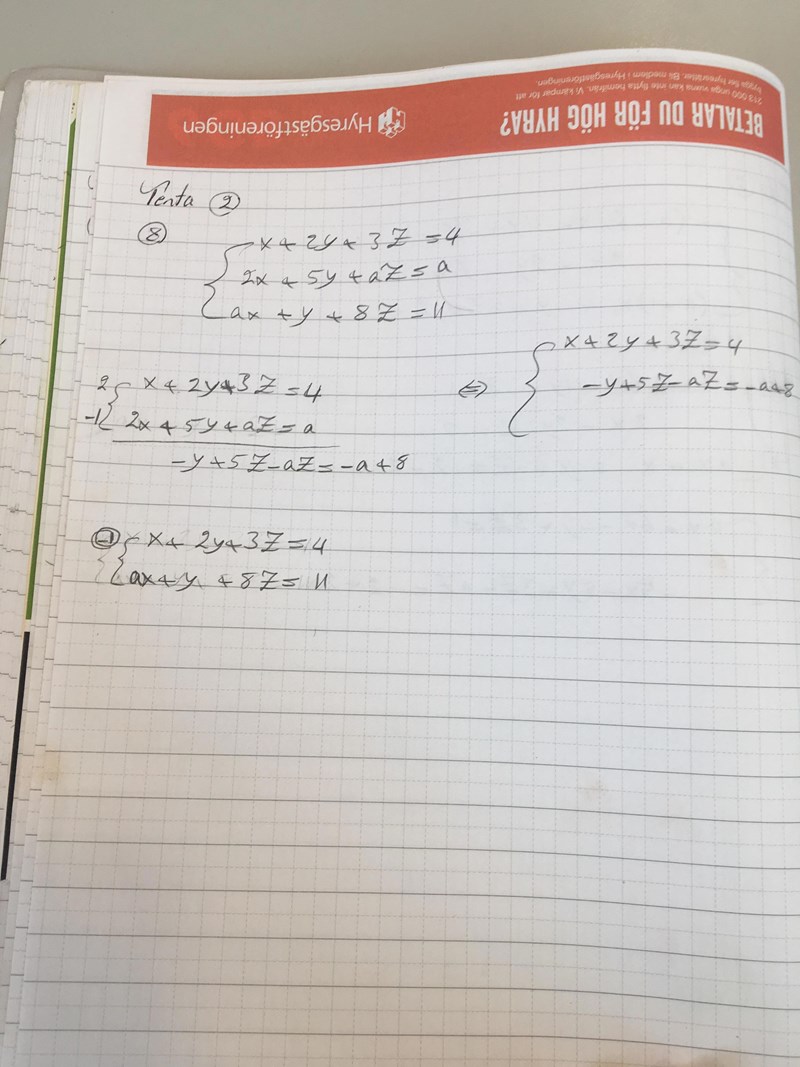 BETALAR DU FÖR HÖG HYRA?
213 000 unga vuxna kan inte flytta hemifrån. Vi kämpar för att
bygga fler hyresrätter. Bli medlem i Hyresgästföreningen.
Hyresgästföreningen
Tenta ②
⑧
x + 2y + 3Z = 4
2x + 5y + aZ = a
ax + y + 8Z = 11
2 x + 2y + 3Z = 4
-1 2x + 5y + aZ = a
-y + 5Z - aZ = -a + 8
⇔
x + 2y + 3Z = 4
-y + 5Z - aZ = -a + 8
-1 x + 2y + 3Z = 4
ax + y + 8Z = 11